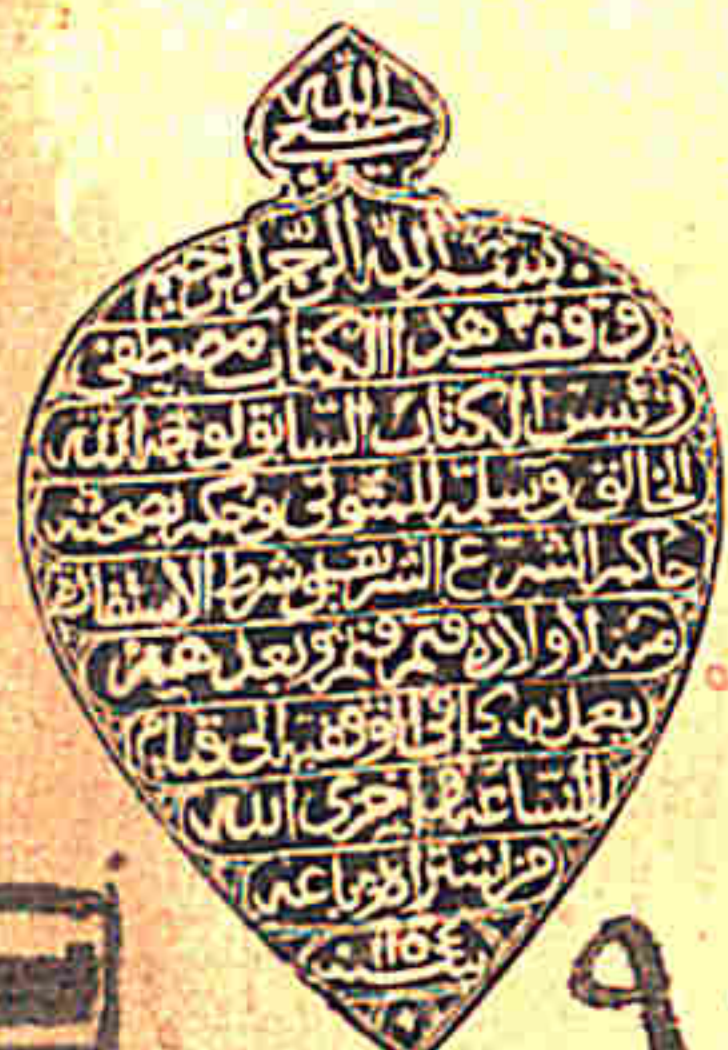 حسبي الله
بسم الله الرحمن الرحيم
وقف هذا الكتاب مصطفى
رئيس الكتاب السابق لوجه الله
الخالق وسلمه للمتولي وحكم بصحته
حاكم الشرع الشريف وشرط الاستفادة
منه لاولاده وبعدهم
يعمل به كما في الى قيام
الساعة اخزى الله
من اشتراه وباعه
سنة ١١٥٤